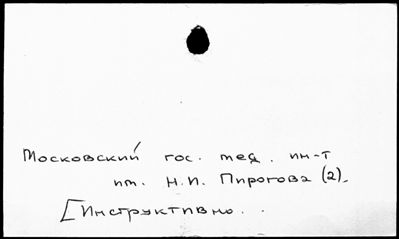 Московский гос. мед. ин-т
им. Н.И. Пирогова (2).
[Инструктивно..